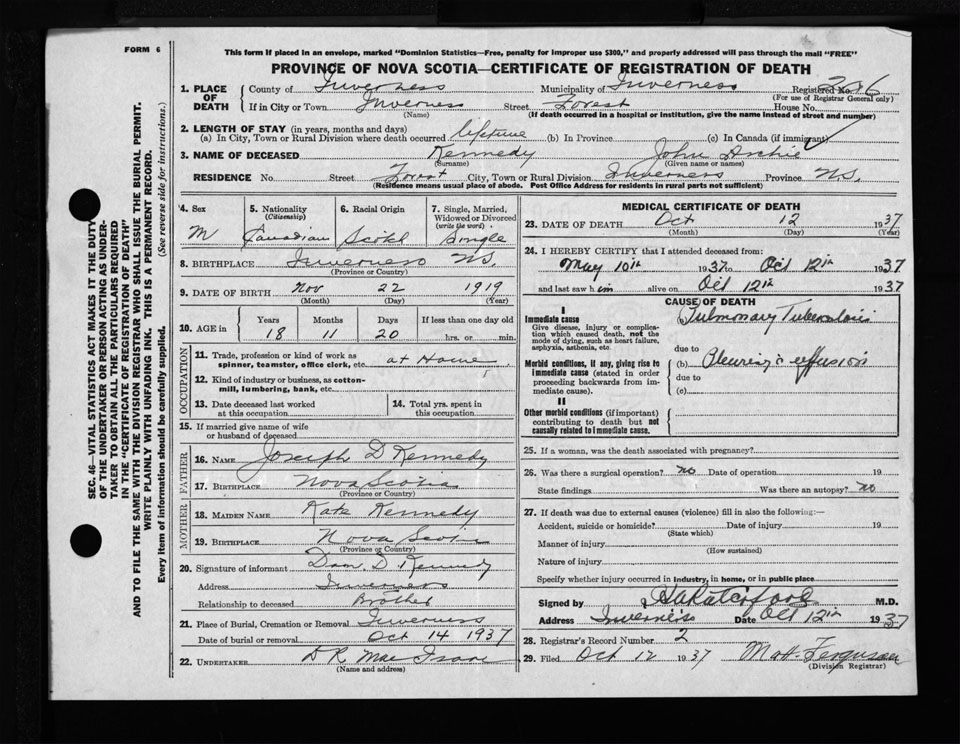 FORM 6
This form if placed in an envelope, marked "Dominion Statistics—Free, penalty for improper use $300," and properly addressed will pass through the mail "FREE"
PROVINCE OF NOVA SCOTIA—CERTIFICATE OF REGISTRATION OF DEATH
SEC. 46—VITAL STATISTICS ACT MAKES IT THE DUTY
OF THE UNDERTAKER OR PERSON ACTING AS UNDER-
TAKER TO OBTAIN ALL THE PARTICULARS REQUIRED
IN THE "CERTIFICATE OF REGISTRATION OF DEATH"
AND TO FILE THE SAME WITH THE DIVISION REGISTRAR WHO SHALL ISSUE THE BURIAL PERMIT.
WRITE PLAINLY WITH UNFADING INK. THIS IS A PERMANENT RECORD.
Every item of information should be carefully supplied. (See reverse side for instructions.)
1. PLACE OF DEATH
County of Inverness Municipality of Inverness Registered No.
(For use of Registrar General only)
If in City or Town Inverness Street Forest House No.
(Name) (If death occurred in a hospital or institution, give the name instead of street and number)
2. LENGTH OF STAY (in years, months and days)
(a) In City, Town or Rural Division where death occurred lifetime (b) In Province (c) In Canada (if immigrant)
3. NAME OF DECEASED Kennedy John Archie
(Surname) (Given name or names)
RESIDENCE No. Street Forest City, Town or Rural Division Inverness Province N.S.
(Residence means usual place of abode. Post Office Address for residents in rural parts not sufficient)
4. Sex M
5. Nationality (Citizenship) Canadian
6. Racial Origin Scotch
7. Single, Married, Widowed or Divorced (write the word) Single
8. BIRTHPLACE Inverness N.S.
(Province or Country)
9. DATE OF BIRTH Nov 22 1919
(Month) (Day) (Year)
10. AGE in Years Months Days If less than one day old
18 11 20 hrs. or min.
OCCUPATION
11. Trade, profession or kind of work as
spinner, teamster, office clerk, etc. at Home
12. Kind of industry or business, as cotton-
mill, lumbering, bank, etc.
13. Date deceased last worked
at this occupation
14. Total yrs. spent in
this occupation
15. If married give name of wife
or husband of deceased
FATHER
16. NAME Joseph D Kennedy
17. BIRTHPLACE Nova Scotia
(Province or Country)
MOTHER
18. MAIDEN NAME Kate Kennedy
19. BIRTHPLACE Nova Scotia
(Province or Country)
20. Signature of informant Dan D. Kennedy
Address Inverness
Relationship to deceased Brother
21. Place of Burial, Cremation or Removal Inverness
Date of burial or removal Oct 14 1937
22. UNDERTAKER D R Mac Isaac
(Name and address)
MEDICAL CERTIFICATE OF DEATH
23. DATE OF DEATH Oct 12 1937
(Month) (Day) (Year)
24. I HEREBY CERTIFY that I attended deceased from:
May 10th 1937 to Oct 12th 1937
and last saw him alive on Oct 12th 1937
CAUSE OF DEATH
I
Immediate cause
Give disease, injury or complica-
tion which caused death, not the
mode of dying, such as heart failure,
asphyxia, asthenia, etc.
(a) Pulmonary Tuberculosis
due to
Morbid conditions, if any, giving rise to
immediate cause (stated in order
proceeding backwards from im-
mediate cause).
(b) Pleurisy c effusion
due to
(c)
II
Other morbid conditions (if important)
contributing to death but not
causally related to immediate cause.
25. If a woman, was the death associated with pregnancy?
26. Was there a surgical operation? no Date of operation 19
State findings Was there an autopsy? no
27. If death was due to external causes (violence) fill in also the following:—
Accident, suicide or homicide? Date of injury 19
(State which)
Manner of injury
(How sustained)
Nature of injury
Specify whether injury occurred in industry, in home, or in public place
Signed by M.D.
Address Inverness Date Oct 12th 1937
28. Registrar's Record Number 2
29. Filed Oct 12 1937 Matt. Ferguson
(Division Registrar)